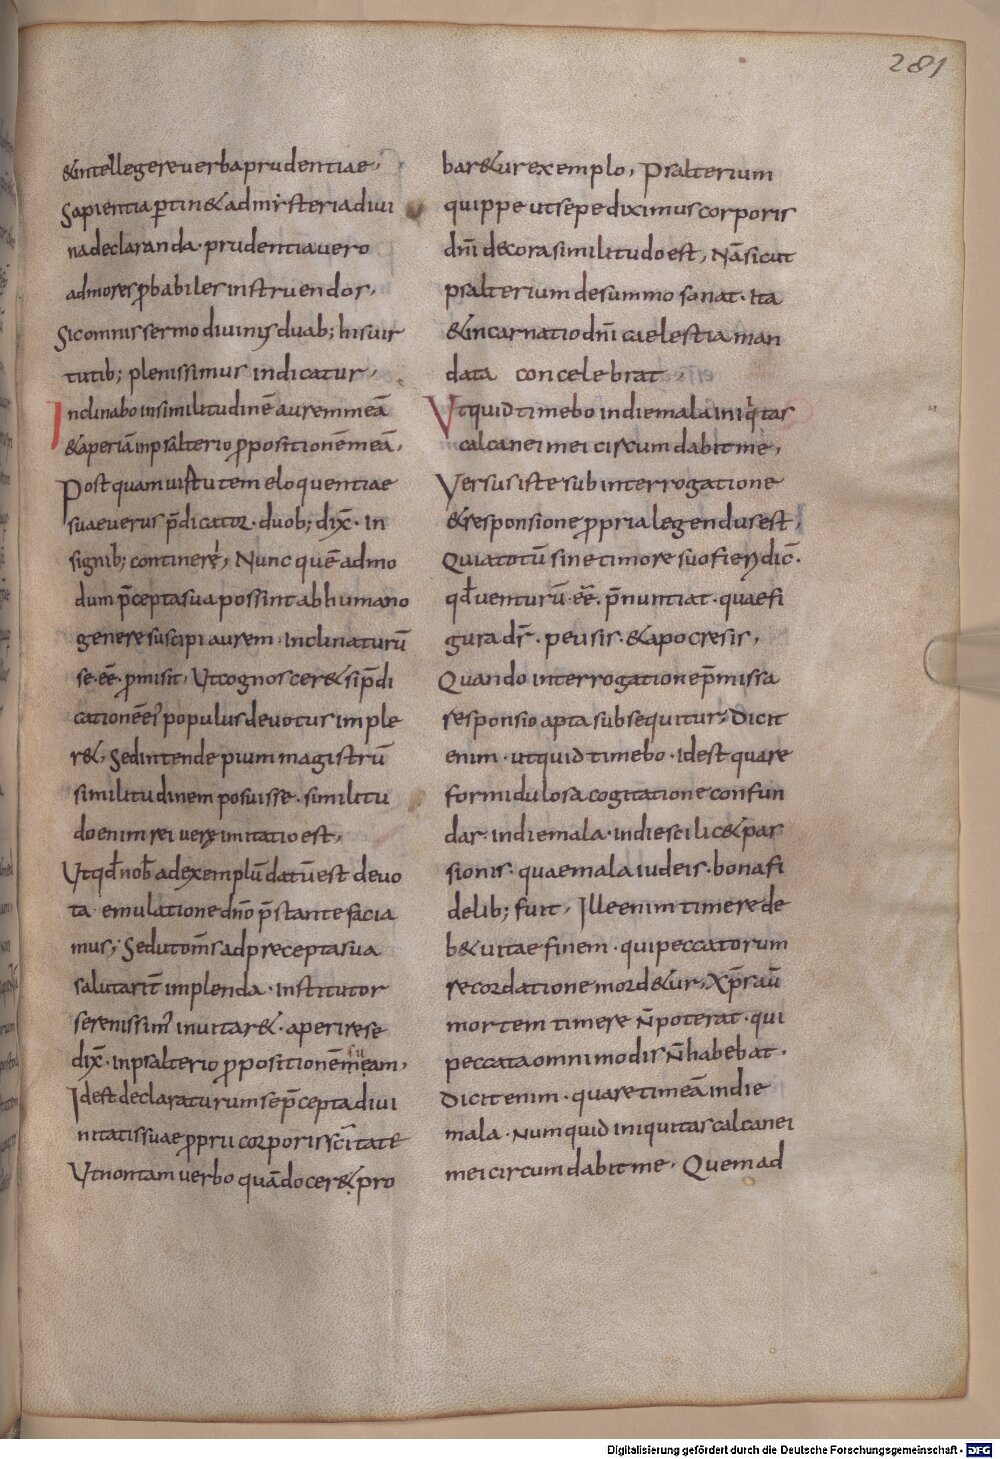 281
&intellegere uerba prudentiae·
Sapientia ꝑtin& ad mysteria diui
na declaranda· prudentia uero
ad mores ꝓbabiles instruendos,
Sic omnis sermo diuinus duab; his uir
tutib; plenissimus indicatur,
Inclinabo in similitudinē aurem meā
& aperiā in psalterio ꝓpositionē meā,
Postquam uirtutem eloquentiae
suae uerus p̄dicator· duob; dix̄· in
signib; contineri, Nunc quē admo
dum p̄cepta sua possint ab humano
genere suscipi aurem· Inclinaturū
se· ēē· ꝓmisit, Ut cognoscer& si p̄di
cationē ei populus deuotus imple
r&, Sed intende pium magistrū
similitudinem posuisse· similitu
do enim rei uerę imitatio est,
Ut qd̄ nob̄ ad exemplū datū est deuo
ta emulatione dn̄o p̄stante facia
mus; Sed ut om̄s ad precepta sua
salutarit̄ implenda· institutor
serenissim' inuitar&· aperire se
dix̄· in psalterio ꝓpositionē meam,
su
Id est declaraturum se p̄cepta diui
nitatis suae ꝓprii corporis sc̄itate
Ut non tam uerbo quā docer& pro
bar&ur exemplo, Psalterium
quippe ut sepe diximus corporis
dn̄i decora similitudo est, Nā sicut
psalterium de summo sonat· Ita
& incarnatio dn̄i caelestia man
data concelebrat,
Ut quid timebo in die mala iniq̇tas
calcanei mei circumdabit me,
Versus iste sub interrogatione
& responsione ꝓpria legendus est,
Quia totū sine timore suo fieri dic̄·
qd̄ uenturū· ēē· p̄nuntiat· quae fi
gura dr̄· peusis· & apocresis,
Quando interrogatione p̄missa
responsio apta subsequitur, Dicit
enim· ut quid timebo· Id est quare
formidulosa cogitatione confun
dar in die mala· in die scilic& pas
sionis· quae mala iudeis· bona fi
delib; fuit, Ille enim timere de
b& uitae finem· qui peccatorum
recordatione mord&ur, Xp̄s aū
mortem timere n̄ poterat· qui
peccata omnimodis n̄ habebat·
Dicit enim· quare timeā in die
mala· Numquid iniquitas calcanei
mei circumdabit me, Quem ad
Digitalisierung gefördert durch die Deutsche Forschungsgemeinschaft - DFG